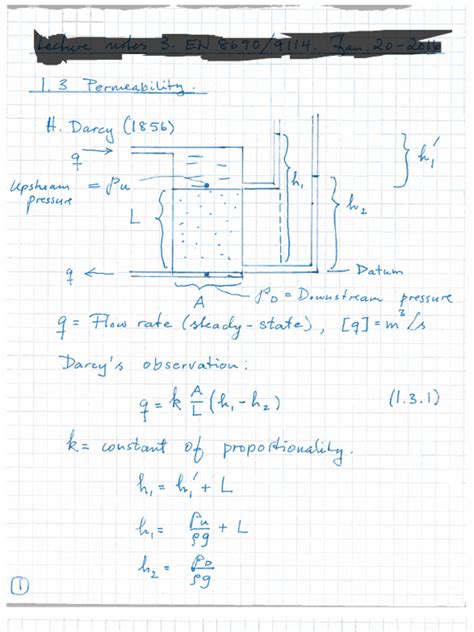 Lecture notes 3. EN 8690/9114. Jan. 20-2016
1.3 Permeability.
H. Darcy (1856)
q
Upstream pressure = Pu
L
h₁
h₁'
h₂
q
Datum
A
P_D = Downstream pressure
q = Flow rate (steady-state), [q] = m³/s
Darcy's observation:
q = k A/L (h₁ - h₂) (1.3.1)
k = constant of proportionality.
h₁ = h₁' + L
h₁ = Pu/ρg + L
h₂ = P_D/ρg
1